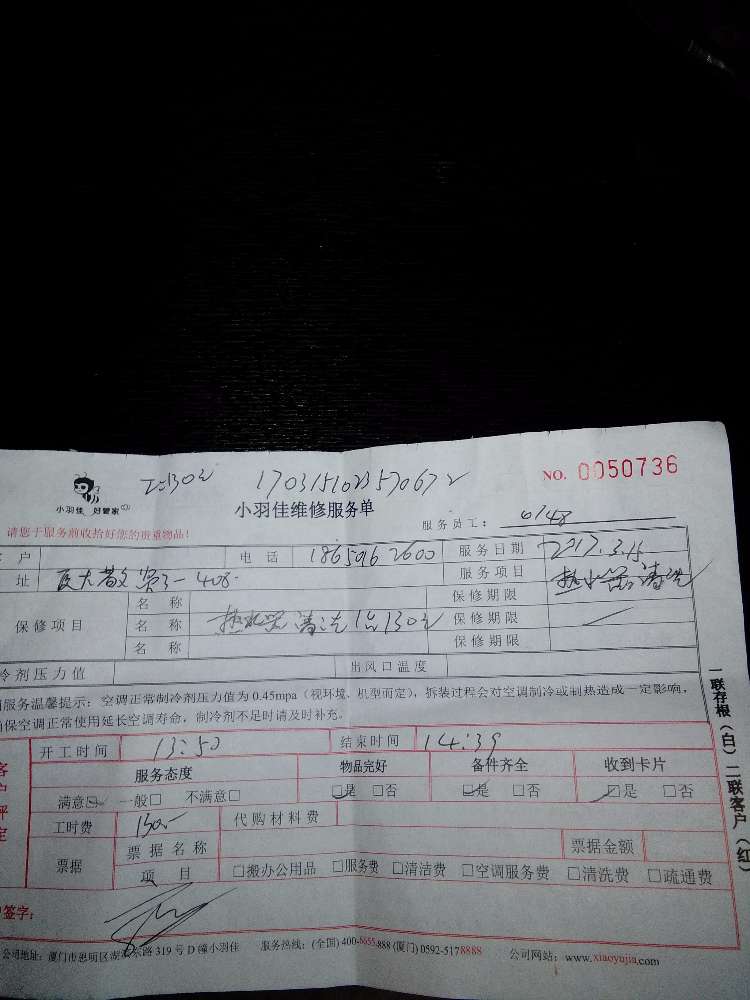 1703151023570672
NO. 0050736
小羽佳 好管家
小羽佳维修服务单
服务员工: 6148
请您于服务前收拾好您的贵重物品!
户 电话 服务日期 2017.3.15
址 服务项目 热水器清洗
保修项目 名称 保修期限
名称 热水器清洗1台130元 保修期限
名称 保修期限
冷剂压力值 出风口温度
服务温馨提示: 空调正常制冷剂压力值为 0.45mpa (视环境、机型而定), 拆装过程会对空调制冷或制热造成一定影响,
保空调正常使用延长空调寿命, 制冷剂不足时请及时补充。
开工时间 13:50 结束时间 14:39
服务态度 物品完好 备件齐全 收到卡片
满意□ 一般□ 不满意□ □是 □否 □是 □否 □是 □否
工时费 代购材料费
票据 票据名称 票据金额
项目 □搬办公用品 □服务费 □清洁费 □空调服务费 □清洗费 □疏通费
签字:
公司地址: 厦门市思明区湖滨东路 319 号 D 幢小羽佳 服务热线: (全国) 400-6655.888 (厦门) 0592-5178888 公司网站: www.xiaoyujia.com
一联存根(白) 二联客户(红)